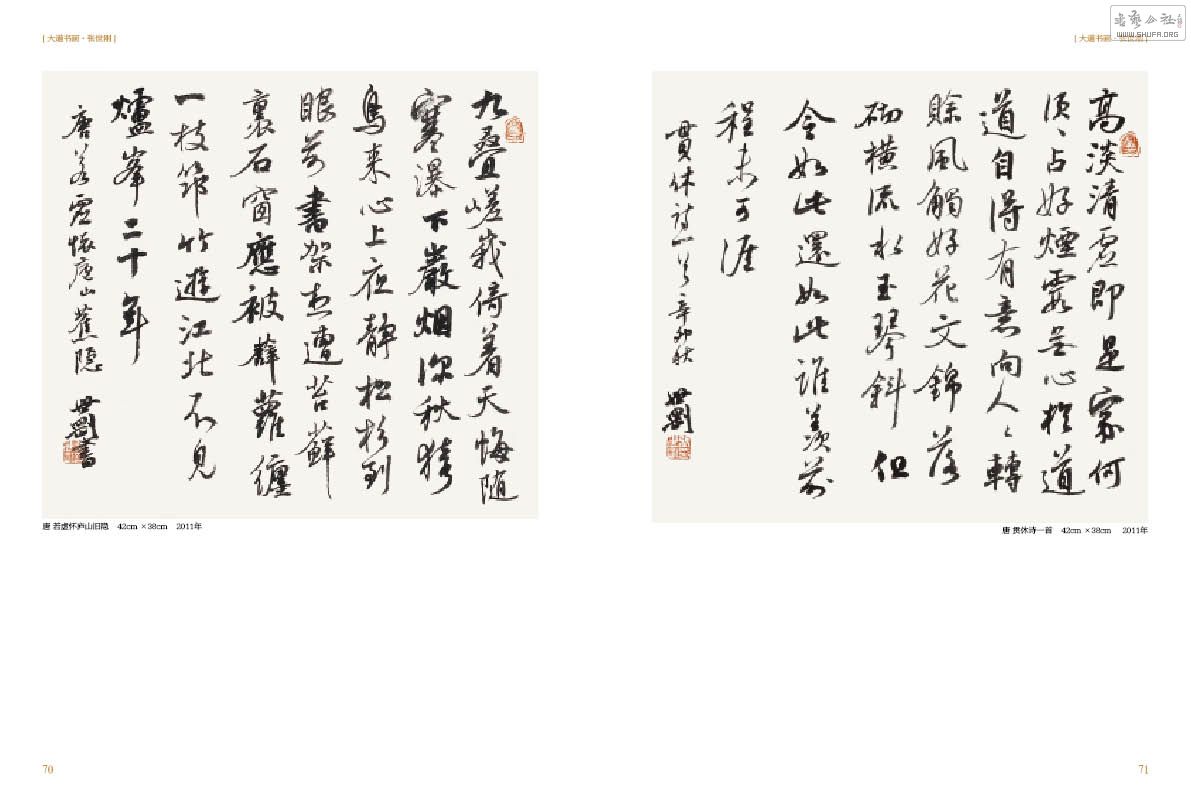 [ 大道书画·张世刚 ]
九叠嵯峨倚着天悔随
寒瀑下巖烟深秋猿
鸟来心上夜静松杉到
眼前書架想遭苔蘚
裏石窗應被薜蘿纏
一枝筇竹遊江北不見
爐峯二十年
唐若虚懷庐山舊隐
世剛書
唐 若虚怀庐山旧隐 42cm ×38cm 2011年
70
[ 大道书画·张世刚 ]
书艺公社
WWW.SHUFA.ORG
高淡清虚即是家何
须、占好煙霞无心於道
道自得有意向人人轉
賒風觸好花文錦落
砌横流水玉琴斜但
令如此還如此誰羡前
程未可涯
贯休诗一首辛卯秋
世剛
唐 贯休诗一首 42cm ×38cm 2011年
71